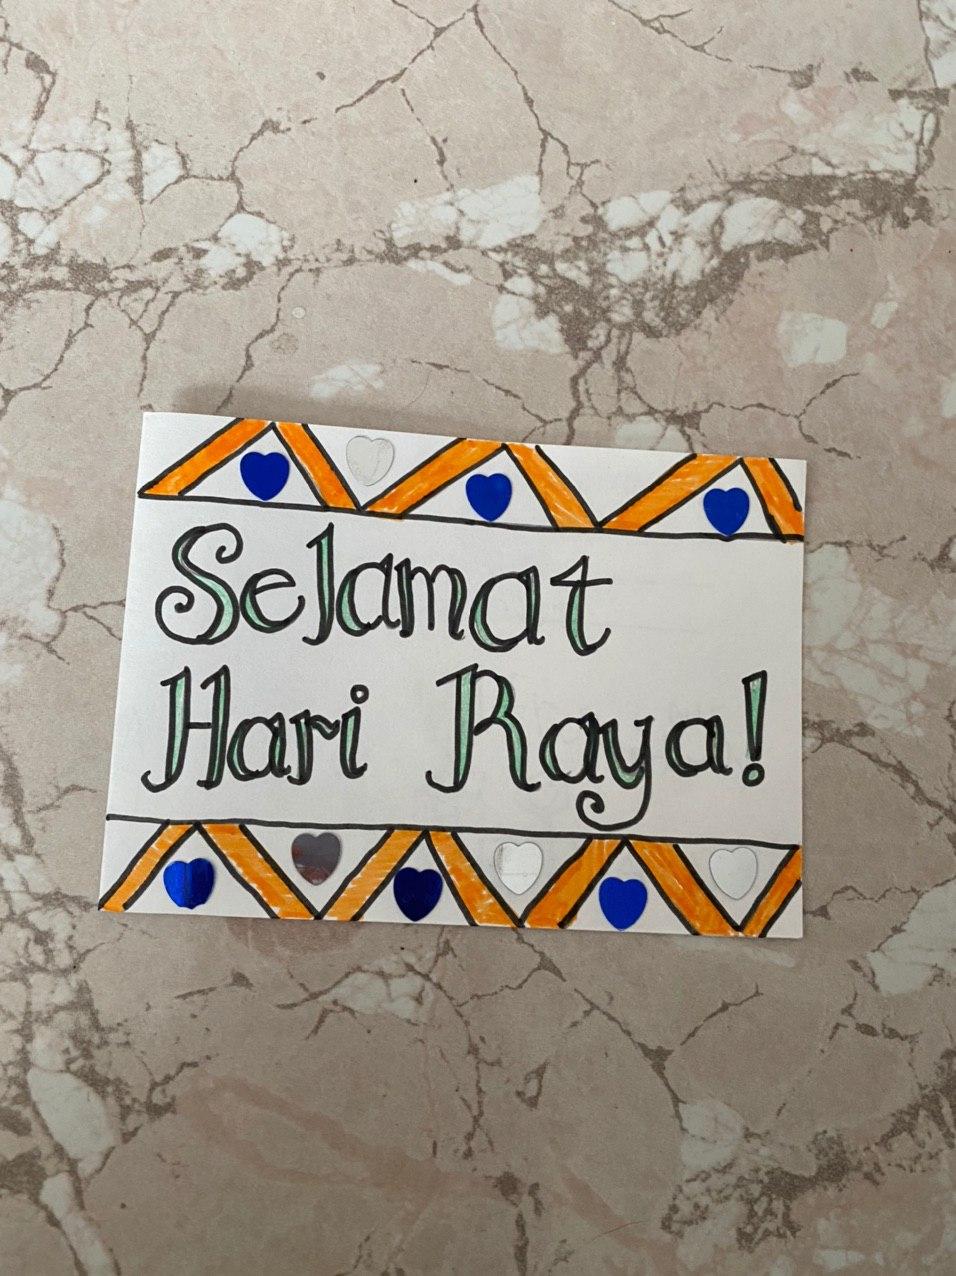 Selamat
Hari Raya!